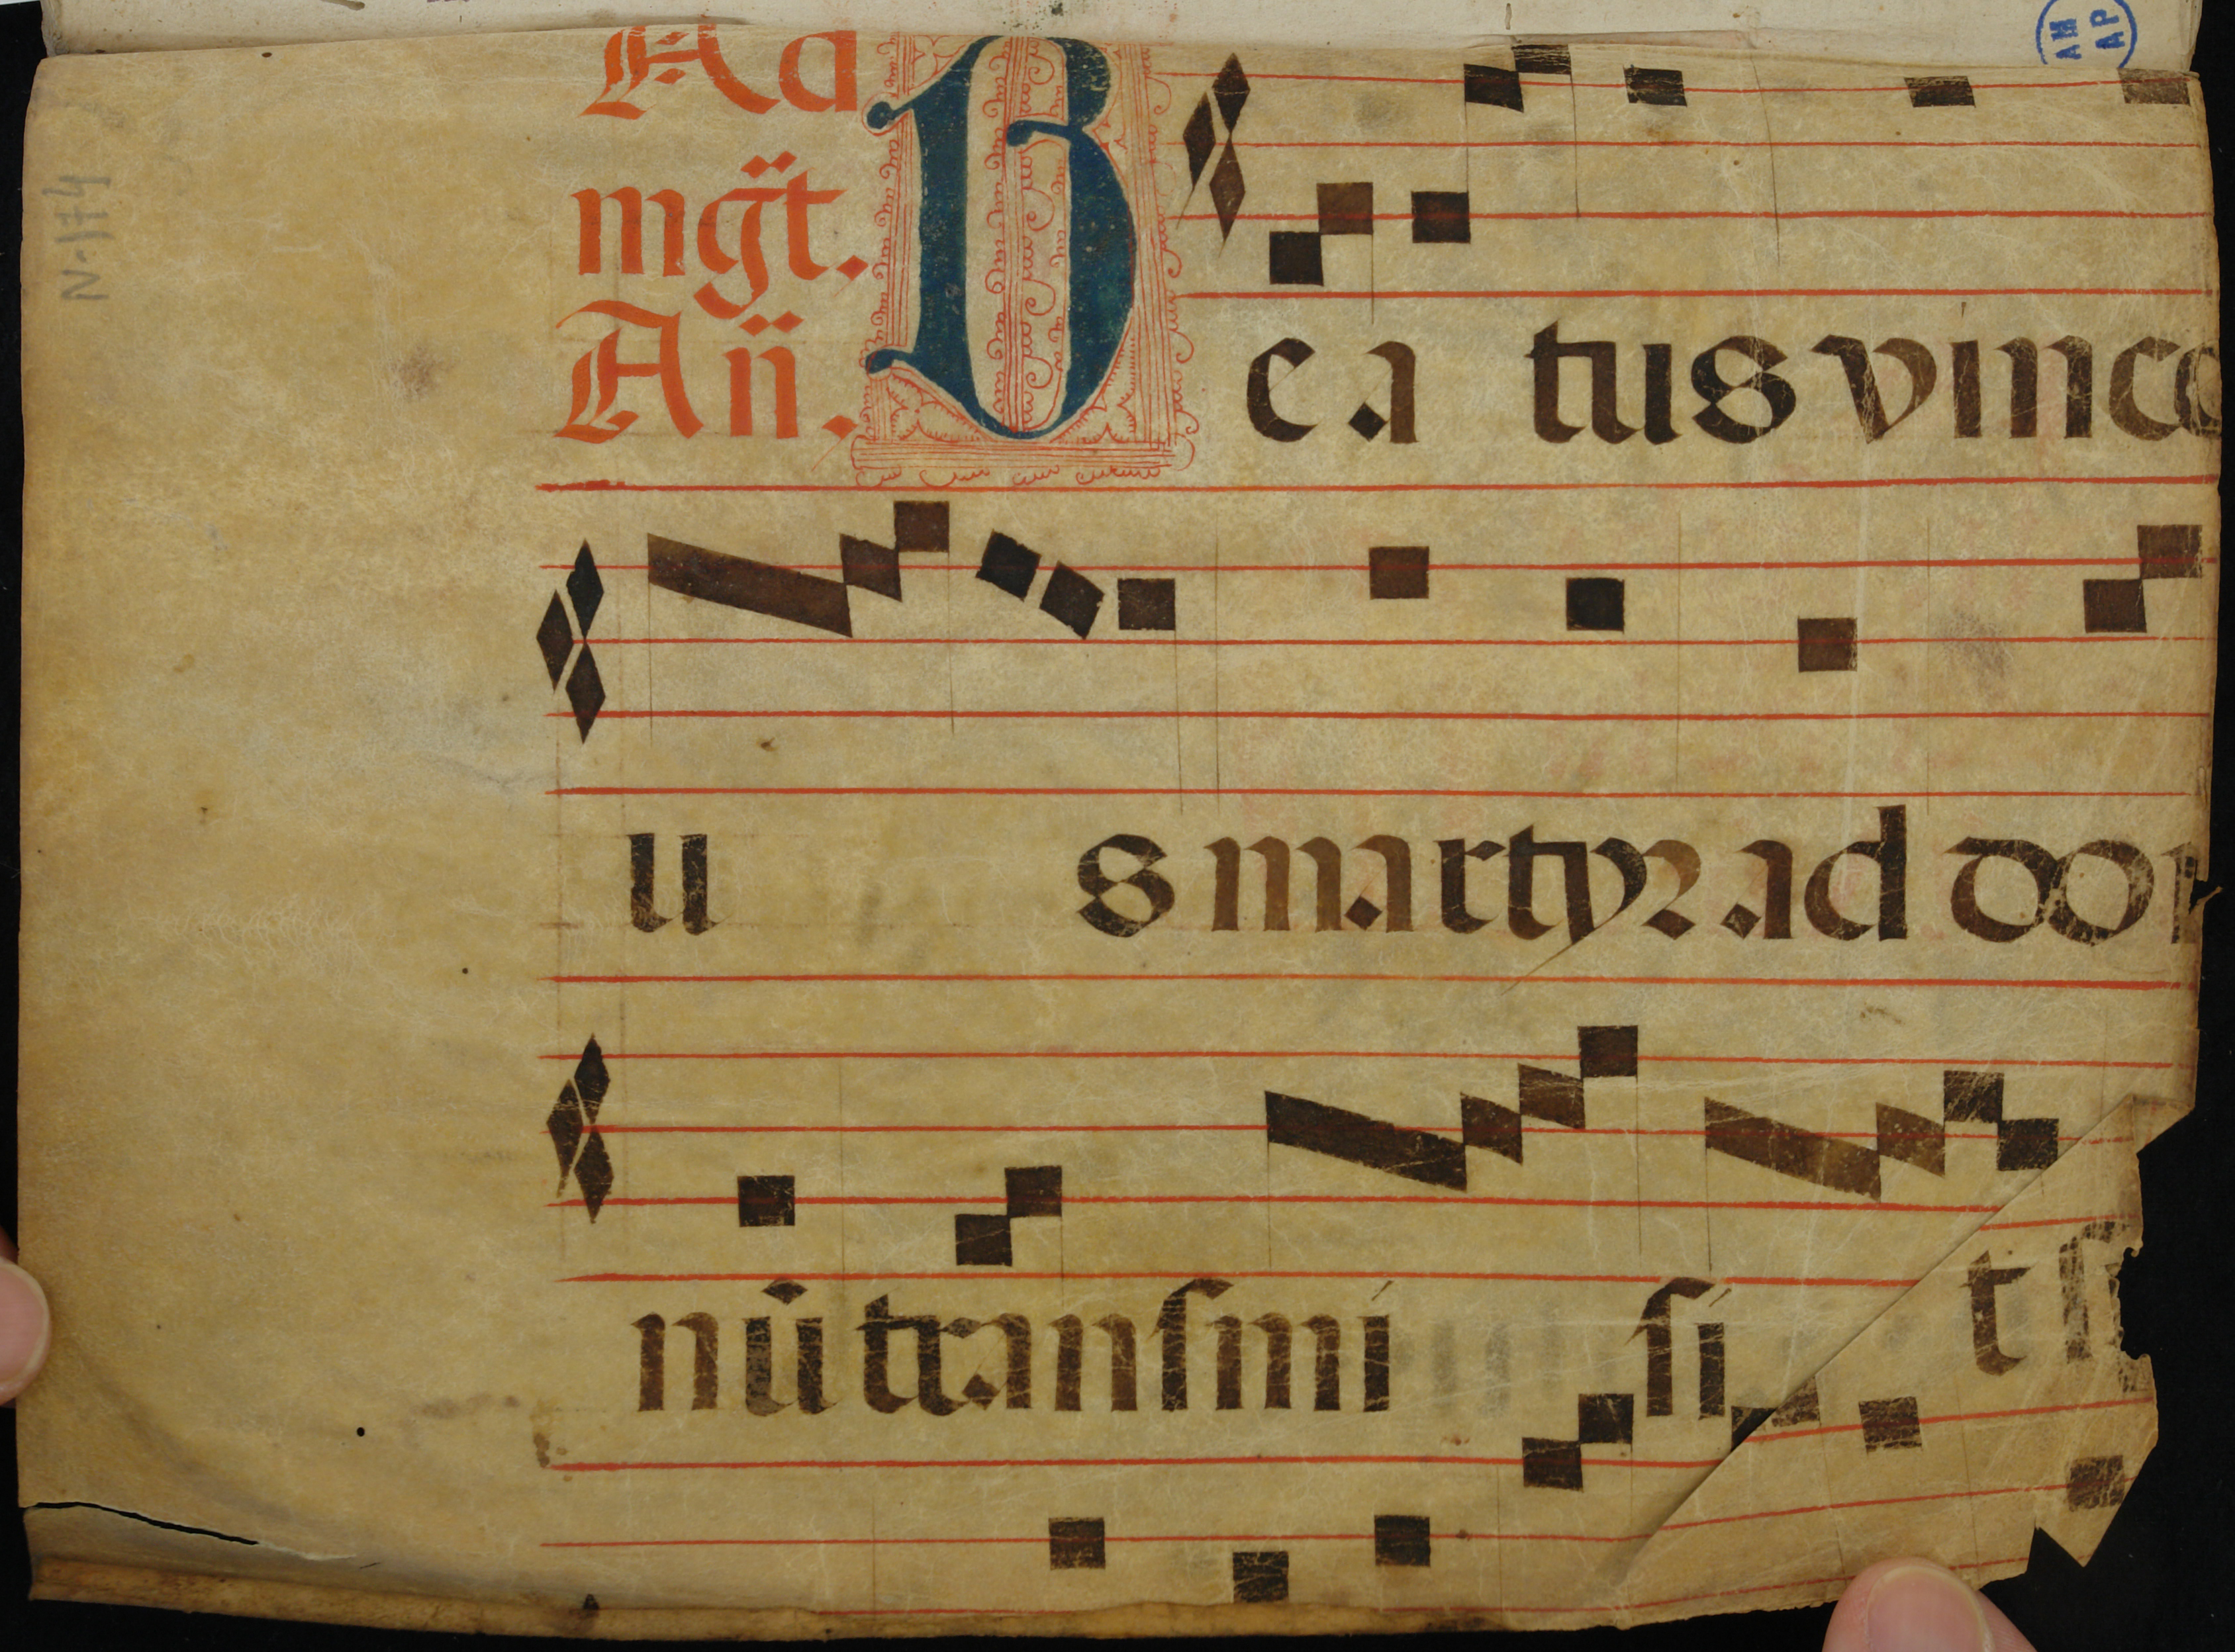 Ad
mg̈t.
An̈. Beatus vince
us martyr ad do
nū tranſmiſit
N-174
AM
AP